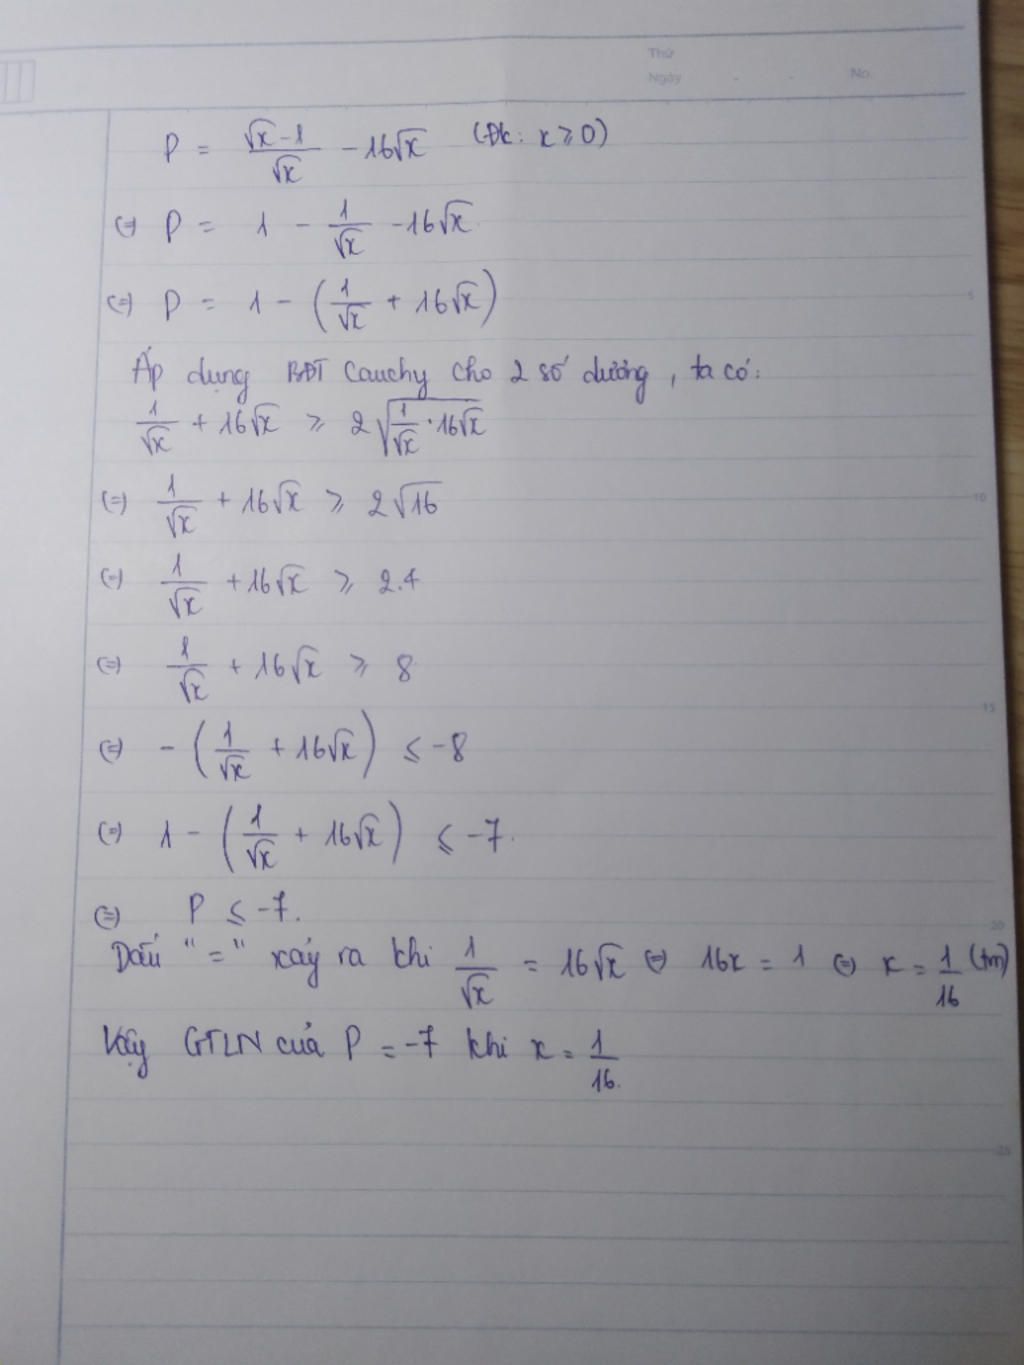 Thứ
Ngày . . No.
P = \frac{\sqrt{x}-1}{\sqrt{x}} - 16\sqrt{x} (Đk: x ⩾ 0)
(=) P = 1 - \frac{1}{\sqrt{x}} - 16\sqrt{x}
(=) P = 1 - (\frac{1}{\sqrt{x}} + 16\sqrt{x})
5
Áp dụng BĐT Cauchy cho 2 số dương, ta có:
\frac{1}{\sqrt{x}} + 16\sqrt{x} ⩾ 2\sqrt{\frac{1}{\sqrt{x}} \cdot 16\sqrt{x}}
(=) \frac{1}{\sqrt{x}} + 16\sqrt{x} ⩾ 2\sqrt{16}
10
(=) \frac{1}{\sqrt{x}} + 16\sqrt{x} ⩾ 2.4
(=) \frac{1}{\sqrt{x}} + 16\sqrt{x} ⩾ 8
15
(=) - (\frac{1}{\sqrt{x}} + 16\sqrt{x}) ⩽ -8
(=) 1 - (\frac{1}{\sqrt{x}} + 16\sqrt{x}) ⩽ -7.
(=) P ⩽ -7.
20
Dấu "=" xảy ra khi \frac{1}{\sqrt{x}} = 16\sqrt{x} (=) 16x = 1 (=) x = \frac{1}{16} (tm)
Vậy GTLN của P = -7 khi x = \frac{1}{16}.
25